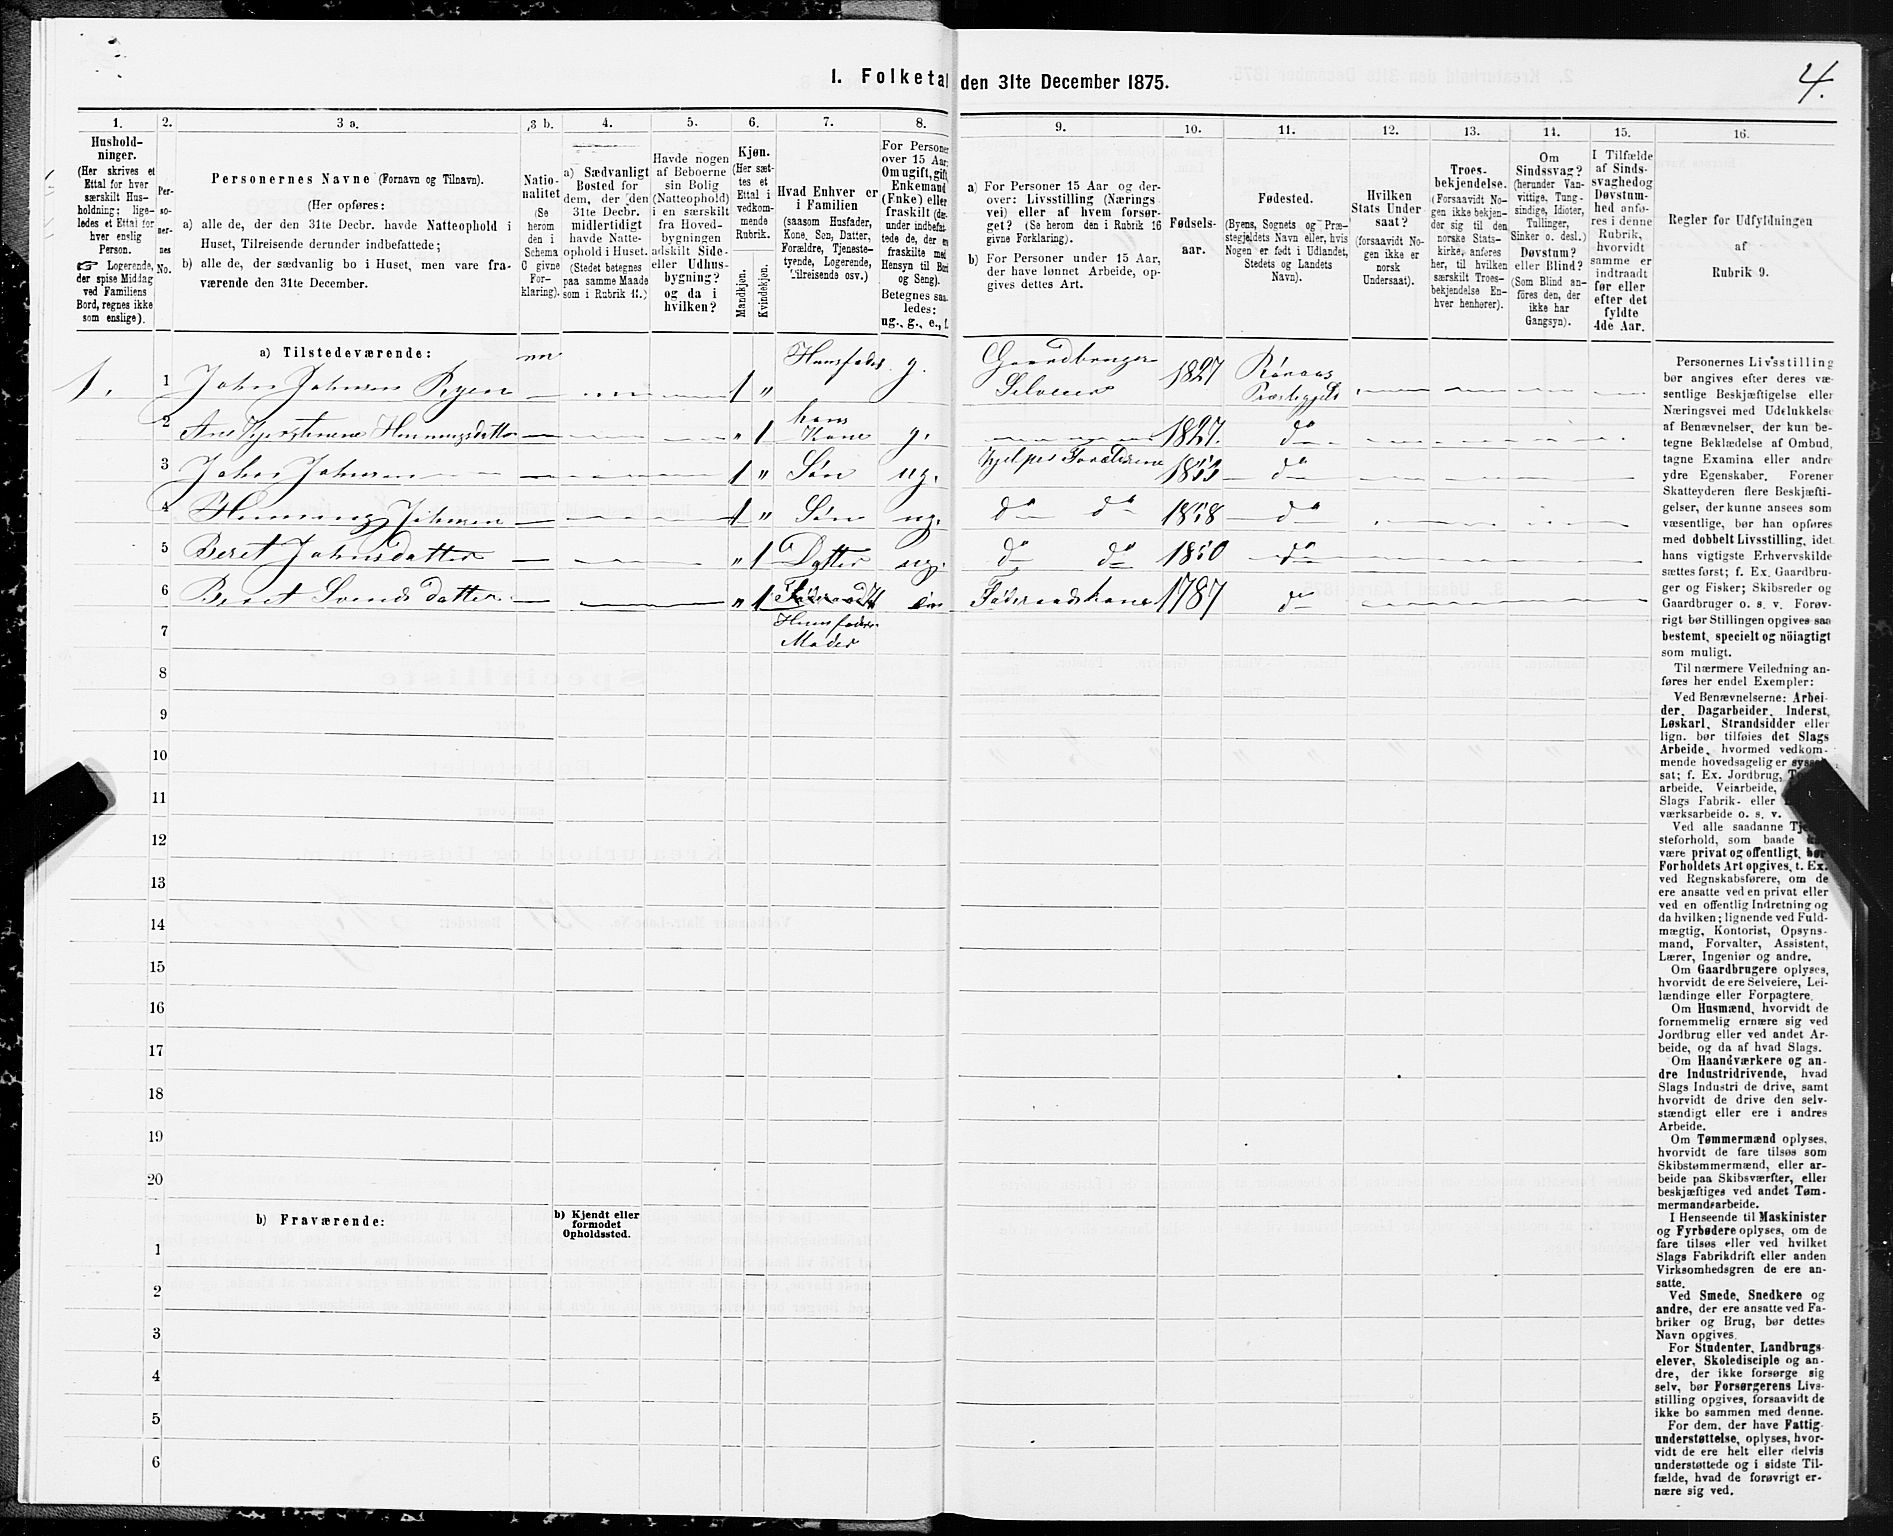 4.
1. Folketal den 31te December 1875.
1.
Hushold-
ninger.
(Her skrives et
Ettal for hver
særskilt Hus-
holdning; lige-
ledes et Ettal for
hver enslig
Person.
☞ Logerende,
der spise Middag
ved Familiens
Bord, regnes ikke
som enslige).
2.
Per-
so-
ner-
nes
No.
3 a.
Personernes Navne (Fornavn og Tilnavn).
(Her opføres:
a) alle de, der den 31te Decbr. havde Natteophold i
Huset, Tilreisende derunder indbefattede;
b) alle de, der sædvanlig bo i Huset, men vare fra-
værende den 31te December.
3 b.
Natio-
nalitet
(Se
herom
den i
Schema
C givne
For-
klaring).
4.
a) Sædvanligt
Bosted for
dem, der den
31te Decbr.
midlertidigt
havde Natte-
ophold i Huset.
(Stedet betegnes
paa samme Maade
som i Rubrik 11.)
5.
Havde nogen
af Beboerne
sin Bolig
(Natteophold)
i en særskilt
fra Hoved-
bygningen
adskilt Side-
eller Udhus-
bygning?
og da i
hvilken?
6.
Kjøn.
(Her sæt-
tes et
Ettal i
vedkom-
mende
Rubrik.
Mandkjøn.
Kvindekjøn.
7.
Hvad Enhver er
i Familien
(saasom Husfader,
Kone, Søn, Datter,
Forældre, Tjeneste-
tyende, Logerende,
Tilreisende osv.)
8.
For Personer
over 15 Aar:
Om ugift, gift,
Enkemand
(Enke) eller
fraskilt (der-
under indbefat-
tede de, der ere
fraskilte med
Hensyn til Bord
og Seng).
Betegnes saa-
ledes:
ug., g., e., f.
9.
a) For Personer 15 Aar og der-
over: Livsstilling (Nærings
vei) eller af hvem forsør-
get? (Se herom den i Rubrik 16
givne Forklaring).
b) For Personer under 15 Aar,
der have lønnet Arbeide, op-
gives dettes Art.
10.
Fødsels-
aar.
11.
Fødested.
(Byens, Sognets og Præ-
stegjeldets Navn eller, hvis
Nogen er født i Udlandet,
Stedets og Landets
Navn).
12.
Hvilken
Stats Under
saat?
(forsaavidt No-
gen ikke er
norsk
Undersaat).
13.
Troes-
bekjendelse.
(Forsaavidt No-
gen ikke bekjen-
der sig til den
norske Stats-
kirke, anføres
her, til hvilken
særskilt Troes-
bekjendelse En-
hver henhører).
14.
Om
Sindssvag?
(herunder Van-
vittige, Tung-
sindige, Idioter,
Tullinger,
Sinker o. desl.)
Døvstum?
eller Blind?
(Som Blind an-
føres den, der
ikke har
Gangsyn).
15.
I Tilfælde
af Sinds-
svaghed og
Døvstum-
hed anfø-
res i denne
Rubrik,
hvorvidt
samme er
indtraadt
før eller
efter det
fyldte
4de Aar.
16.
Regler for Udfyldningen
af
Rubrik 9.
a) Tilstedeværende:
1. 1 John Johnsen Ryen nn 1 " Huusfader g. Gaardbruger Selveier 1827 Röraas Præstegjeld
2 Ane Kjerstinene Henningsdatter " 1 hans Kone g. 1827. do
3 John Johnsen 1 " Søn ug. hjelper Forældrene 1853 do
4 Henning Johnsen 1 " Søn ug. do do 1858 do
5 Beret Johnsdatter " 1 Datter ug. do do 1850 do
6 Beret Svendsdatter " 1 Huusfaders Moder Föderaadskone 1787 do
7
8
9
10
11
12
13
14
15
16
17
18
19
20
b) Fraværende:
b) Kjendt eller
formodet
Opholdssted.
1
2
3
4
5
6
Personernes Livsstilling
bør angives efter deres væ-
sentlige Beskjæftigelse eller
Næringsvei med Udelukkelse
af Benævnelser, der kun be-
tegne Beklædelse af Ombud,
tagne Examina eller andre
ydre Egenskaber. Forener
Skatteyderen flere Beskjæfti-
gelser, der kunne ansees som
væsentlige, bør han opføres
med dobbelt Livsstilling, idet
hans vigtigste Erhvervskilde
sættes først; f. Ex. Gaardbru-
ger og Fisker; Skibsreder og
Gaardbruger o. s. v. Forøv-
rigt bør Stillingen opgives saa
bestemt, specielt og nöiagtigt
som muligt.
Til nærmere Veiledning an-
føres her endel Exempler:
Ved Benævnelserne: Arbei-
der, Dagarbeider, Inderst,
Løskarl, Strandsidder eller
lign. bør tilføies det Slags
Arbeide, hvormed vedkom-
mende hovedsagelig er syssel-
sat; f. Ex. Jordbrug,
arbeide, Veiarbeide,
Slags Fabrik- eller
værksarbeide o. s. v.
Ved alle saadanne
steforhold, som baade
være privat og offentligt, bør
Forholdets Art opgives, t. Ex.
ved Regnskabsførere, om de
ere ansatte ved en privat eller
ved en offentlig Indretning og
da hvilken; lignende ved Fuld-
mægtig, Kontorist, Opsyns-
mand, Forvalter, Assistent,
Lærer, Ingeniør og andre.
Om Gaardbrugere oplyses,
hvorvidt de ere Selveiere, Lei-
lændinge eller Forpagtere.
Om Husmænd, hvorvidt de
fornemmelig ernære sig ved
Jordbrug eller ved andet Ar-
beide, og da af hvad Slags.
Om Haandværkere og an-
dre Industridrivende, hvad
Slags Industri de drive, samt
hvorvidt de drive den selv-
stændigt eller ere i andres
Arbeide.
Om Tømmermænd oplyses,
hvorvidt de fare tilsøs som
Skibstømmermænd, eller ar-
beide paa Skibsværfter, eller
beskjæftiges ved andet Tøm-
mermandsarbeide.
I Henseende til Maskinister
og Fyrbødere oplyses, om de
fare tilsøs eller ved hvilket
Slags Fabrikdrift eller anden
Virksomhedsgren de ere an-
satte.
Ved Smede, Snedkere og
andre, der ere ansatte ved Fa-
briker og Brug, bør dettes
Navn opgives.
For Studenter, Landbrugs-
elever, Skoledisciple og an-
dre, der ikke forsørge sig
selv, bør Forsørgerens Livs-
stilling opgives, forsaavidt de
ikke bo sammen med denne.
For dem, der have Fattig-
understøttelse, oplyses, hvor-
vidt de ere helt eller delvis
understøttede og i sidste Til-
fælde, hvad de forøvrigt er-
nære sig ved.